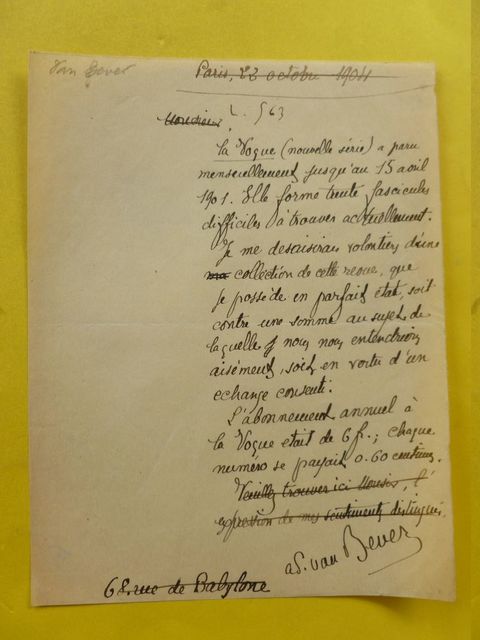 Van Bever
Paris, 22 octobre 1904
Monsieur, L. 563
La Vogue (nouvelle série) a paru
mensuellement jusqu'au 15 avril
1901. Elle forme trente fascicules
difficiles à trouver actuellement.
Je me dessaisirais volontiers d'une
collection de cette revue, que
je possède en parfait état, soit
contre une somme au sujet de
laquelle nous nous entendrions
aisément, soit en vertu d'un
echange consenti.
L'abonnement annuel à
la Vogue était de 6 fr.; chaque
numéro se payait 0.60 centimes.
Veuillez trouver ici Monsieur, l'
expression de mes sentiments distingués.
ad. van Bever
68. rue de Babylone